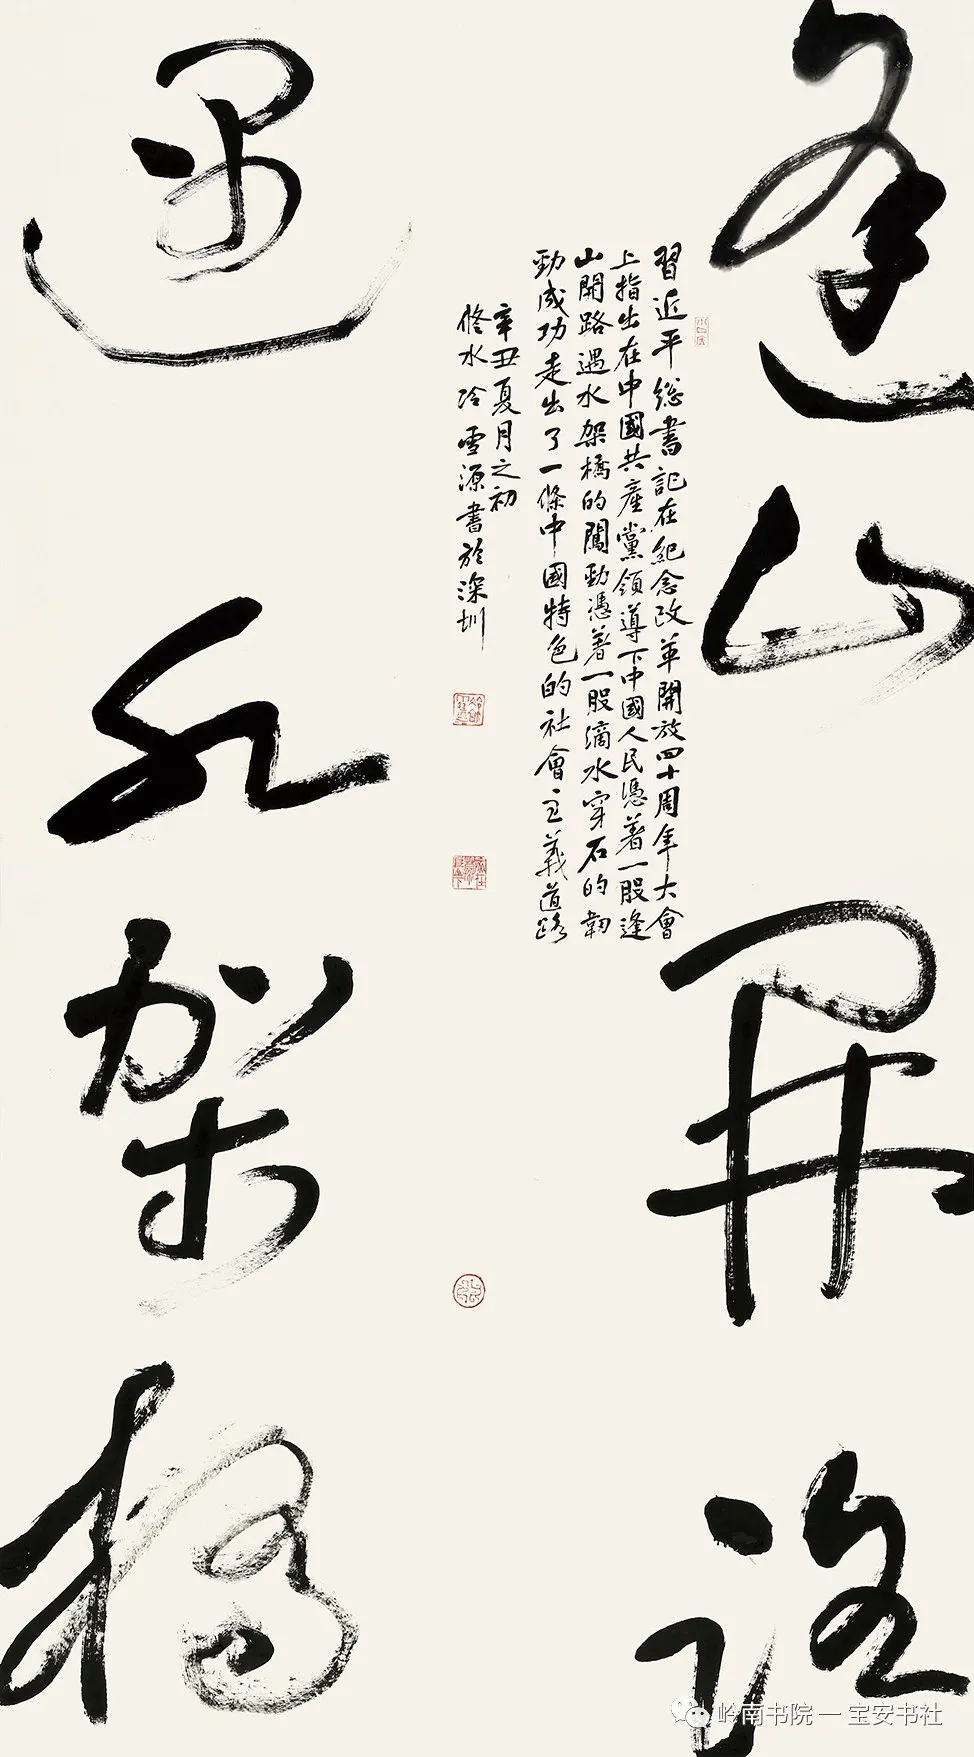 逢山開路
習近平總書記在紀念改革開放四十周年大會
上指出在中國共產黨領導下中國人民憑着一股逢
山開路遇水架橋的闖勁憑着一股滴水穿石的韌
勁成功走出了一條中國特色的社會主義道路
辛丑夏月之初
修水冷雪源書於深圳
遇水架橋
岭南书院 — 宝安书社